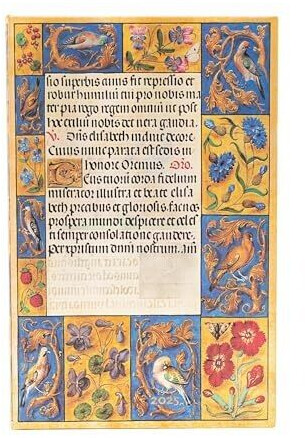 sio superbis cuius fit repressio et
robur humili tui pro nobis ma
ter pia rogo regem omnium ut post
hoc exilium nobis det vera gaudia.
V. Dns elisabeth induit decore.
Cuius nunc parata est sedis in
honore Oremus. Oro.
corda fidelium
miserator illustra et beate elisa
beth precibus et gloriosis. fac nos
prospera mundi despicere et celes
ti semper consolatione gaudere.
Per xpistum dnm nostrum. am
2025